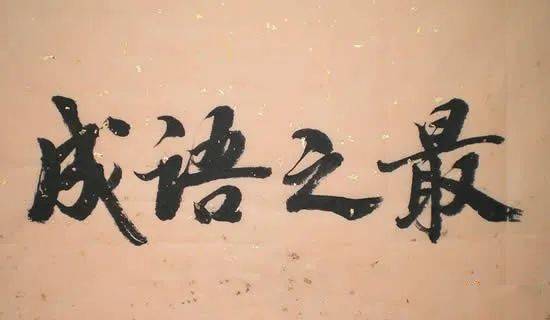 成语之最